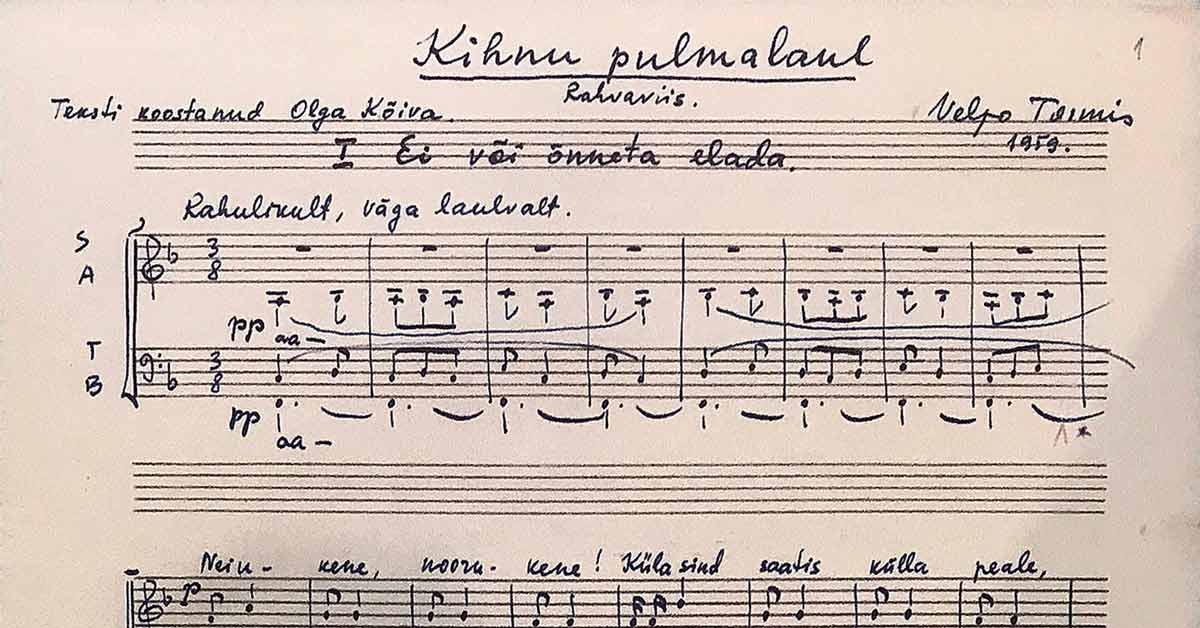 1
Kihnu pulmalaul
Rahvaviis.
Teksti koostanud Olga Kõiva.
Velpo Tormis
1959.
I Ei või õnneta elada.
Rahulikult, väga laulvalt.
S
A
3
8
pp aa –
T
B
3
8
pp aa –
1 *
Neiu - kene, nooru - kene! Küla sind saatis külla peale,
p